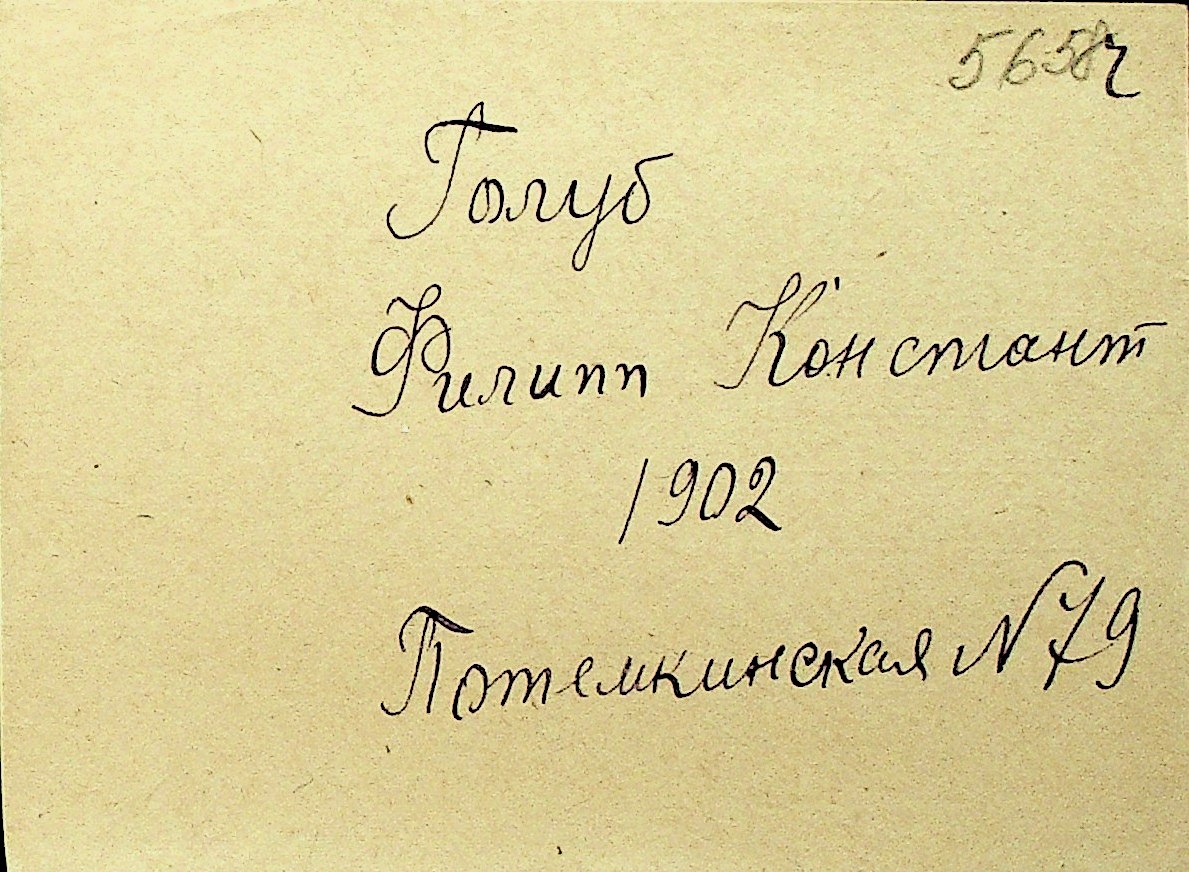 5658ч
Голуб
Филипп Констант
1902
Потемкинская N79